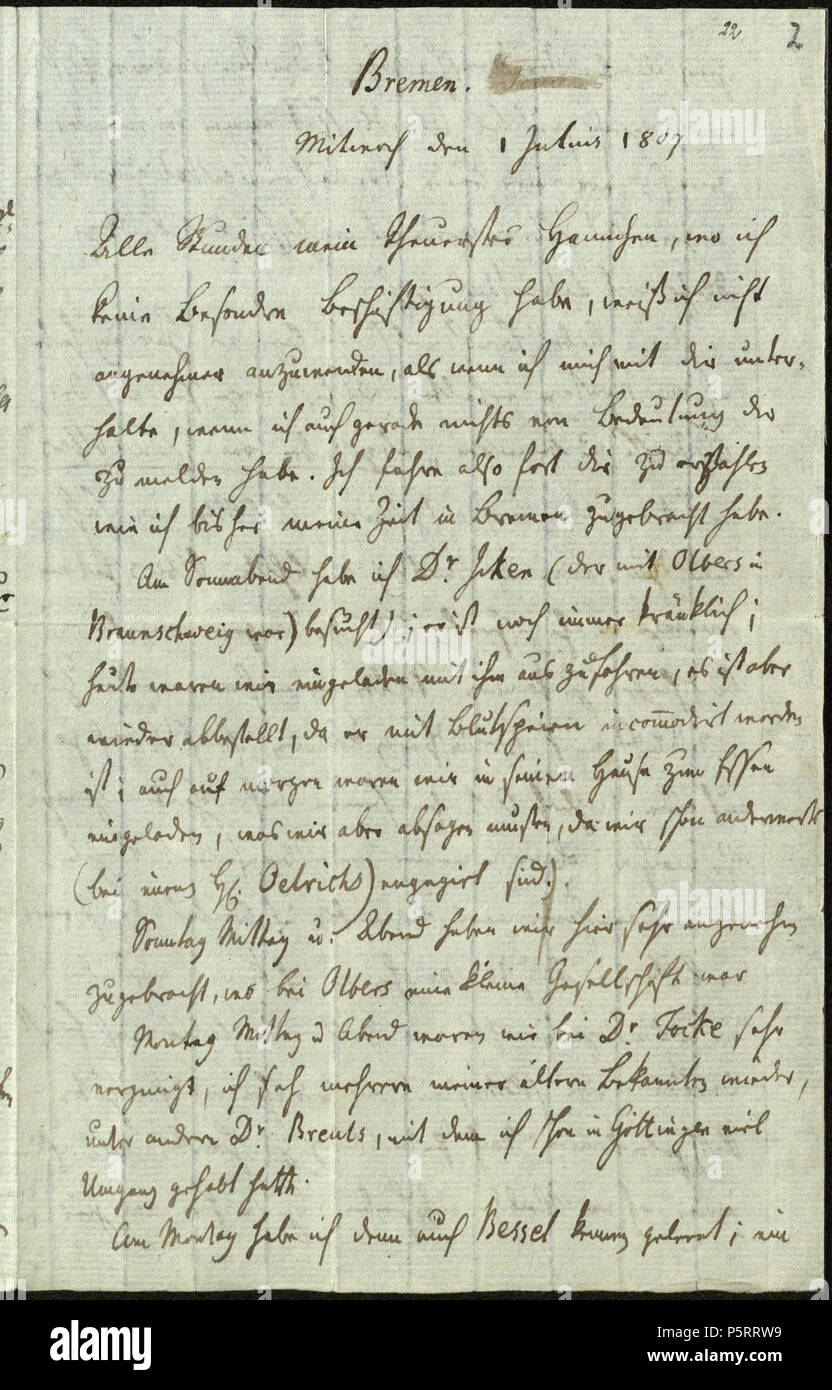 22 2
Bremen.
Mitwoch den 1 Julius 1807
Alle Stunden mein theuerstes Hannchen, wo ich
keine besondre Beschäftigung habe, weiß ich nicht
angenehmer anzuwenden, als wenn ich mich mit dir unter-
halte, wenn ich auch gerade nichts von Bedeutung dir
zu melden habe. Ich fahre also fort dir zu erzählen
wie ich bisher meine Zeit in Bremen zugebracht habe.
Am Sonnabend habe ich Dr. Icken (der mit Olbers in
Braunschweig war) besucht; er ist noch immer kränklich;
heute waren wir eingeladen mit ihm auszufahren, es ist aber
wieder abbestellt, da er mit Blutspeien incom̅odirt worden
ist; auch auf morgen waren wir in seinem Hause zum Essen
eingeladen, was wir aber absagen mußten, da wir schon anderwärts
(bei einem H. Oelrichs) engagirt sind.
Sonntag Mittag u. Abend haben wir hier sehr angenehm
zugebracht, wo bei Olbers eine kleine Gesellschaft war
Montag Mittag u Abend waren wir bei Dr. Focke sehr
vergnügt, ich sah mehrere meiner ältern Bekannten wieder,
unter andern Dr. Brents, mit dem ich schon in Göttingen viel
Umgang gehabt hatte.
Am Montag habe ich denn auch Bessel kennen gelernt; ein
alamy
alamy
Image ID: P5RRW9
www.alamy.com